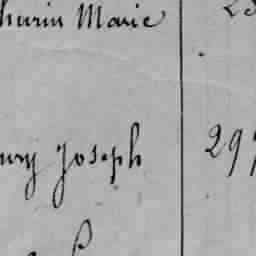 thurin Marie
ury Joseph 297